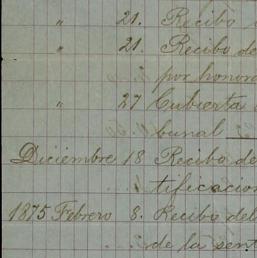 " 21. Recibo
" 21. Recibo de
por honora
" 27 Cubierta
bunal
Diciembre 18 Recibo de
tificacion
1875 Febrero 8. Recibo del
de la sent